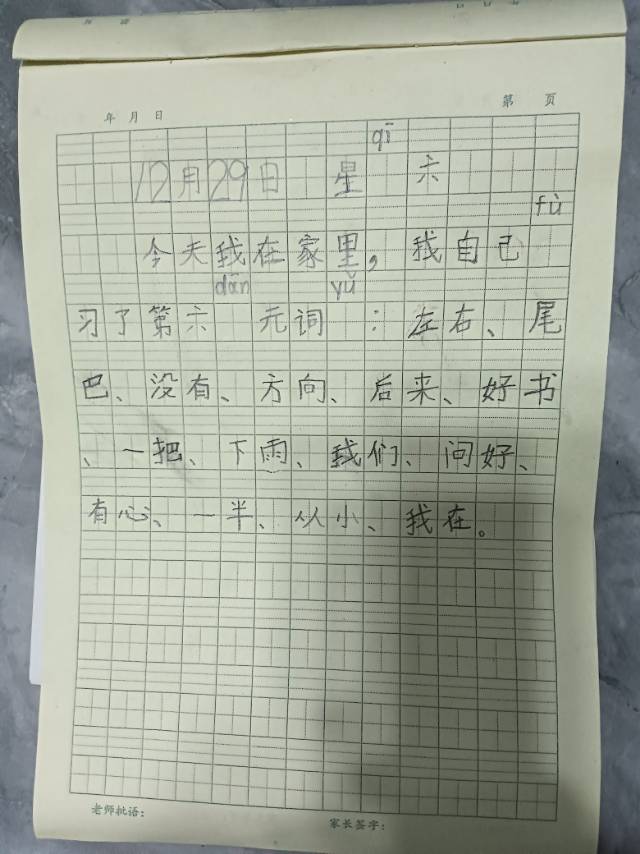 年 月 日 第 页
qī
12月29日 星 六
fù
今天我在家里，我自己
dān yǔ
习了第六 元词 ：左右、尾
巴、没有、方向、后来、好书
、一把、下雨、我们、问好、
有心、一半、从小、我在。
老师批语：
家长签字：